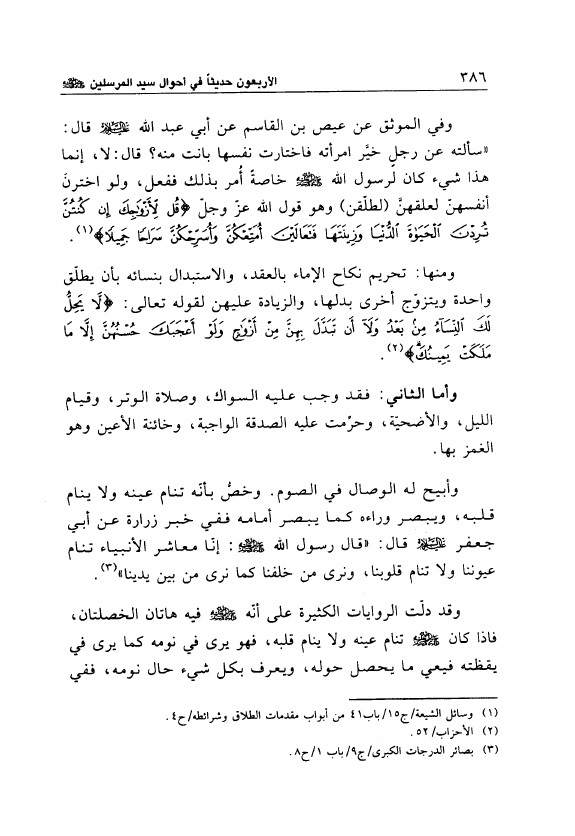 ٣٨٦
الأربعون حديثاً في أحوال سيد المرسلين ﷺ
وفي الموثق عن عيص بن القاسم عن أبي عبد الله عليه السلام قال:
«سألته عن رجلٍ خيَّر امرأته فاختارت نفسها بانت منه؟ قال: لا، إنما
هذا شيء كان لرسول الله ﷺ خاصةً أُمر بذلك ففعل، ولو اخترنَ
أنفسهنّ لعلقهنَّ (لطلقن) وهو قول الله عزّ وجلّ ﴿قُل لِّأَزْوَٰجِكَ إِن كُنتُنَّ
تُرِدْنَ ٱلْحَيَوٰةَ ٱلدُّنْيَا وَزِينَتَهَا فَتَعَالَيْنَ أُمَتِّعْكُنَّ وَأُسَرِّحْكُنَّ سَرَاحًا جَمِيلًا﴾(١).
ومنها: تحريم نكاح الإماء بالعقد، والاستبدال بنسائه بأن يطلّق
واحدة ويتزوّج أخرى بدلها، والزيادة عليهن لقوله تعالى: ﴿لَّا يَحِلُّ
لَكَ ٱلنِّسَآءُ مِنۢ بَعْدُ وَلَآ أَن تَبَدَّلَ بِهِنَّ مِنْ أَزْوَٰجٍ وَلَوْ أَعْجَبَكَ حُسْنُهُنَّ إِلَّا مَا
مَلَكَتْ يَمِينُكَ﴾(٢).
وأما الثاني: فقد وجب عليه السواك، وصلاة الوتر، وقيام
الليل، والأضحيّة، وحرّمت عليه الصدقة الواجبة، وخائنة الأعين وهو
الغمز بها.
وأبيح له الوصال في الصوم. وخصُّ بأنّه تنام عينه ولا ينام
قلبه، ويبصر وراءه كما يبصر أمامه ففي خبر زرارة عن أبي
جعفر عليه السلام قال: «قال رسول الله ﷺ: إنّا معاشر الأنبياء تنام
عيوننا ولا تنام قلوبنا، ونرى من خلفنا كما نرى من بين يدينا»(٣).
وقد دلّت الروايات الكثيرة على أنّه ﷺ فيه هاتان الخصلتان،
فاذا كان ﷺ تنام عينه ولا ينام قلبه، فهو يرى في نومه كما يرى في
يقظته فيعي ما يحصل حوله، ويعرف بكل شيء حال نومه، ففي
(١) وسائل الشيعة/ج١٥/باب٤١ من أبواب مقدمات الطلاق وشرائطه/ح٤.
(٢) الأحزاب/٥٢.
(٣) بصائر الدرجات الكبرى/ج٩/باب ١/ح٨.